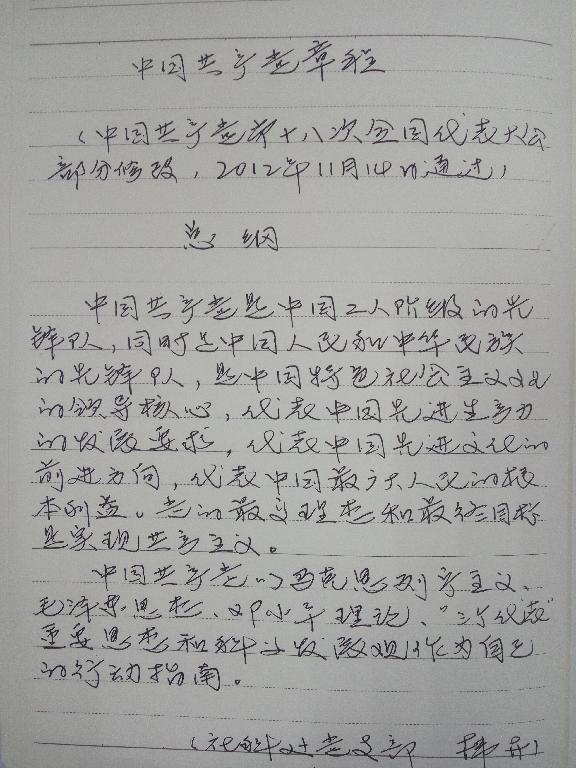 中国共产党章程
(中国共产党第十八次全国代表大会
部分修改，2012年11月14日通过)
总 纲
中国共产党是中国工人阶级的先
锋队，同时是中国人民和中华民族
的先锋队，是中国特色社会主义事业
的领导核心，代表中国先进生产力
的发展要求，代表中国先进文化的
前进方向，代表中国最广大人民的根
本利益。党的最高理想和最终目标
是实现共产主义。
中国共产党以马克思列宁主义、
毛泽东思想、邓小平理论、“三个代表”
重要思想和科学发展观作为自己
的行动指南。
(社科处党支部